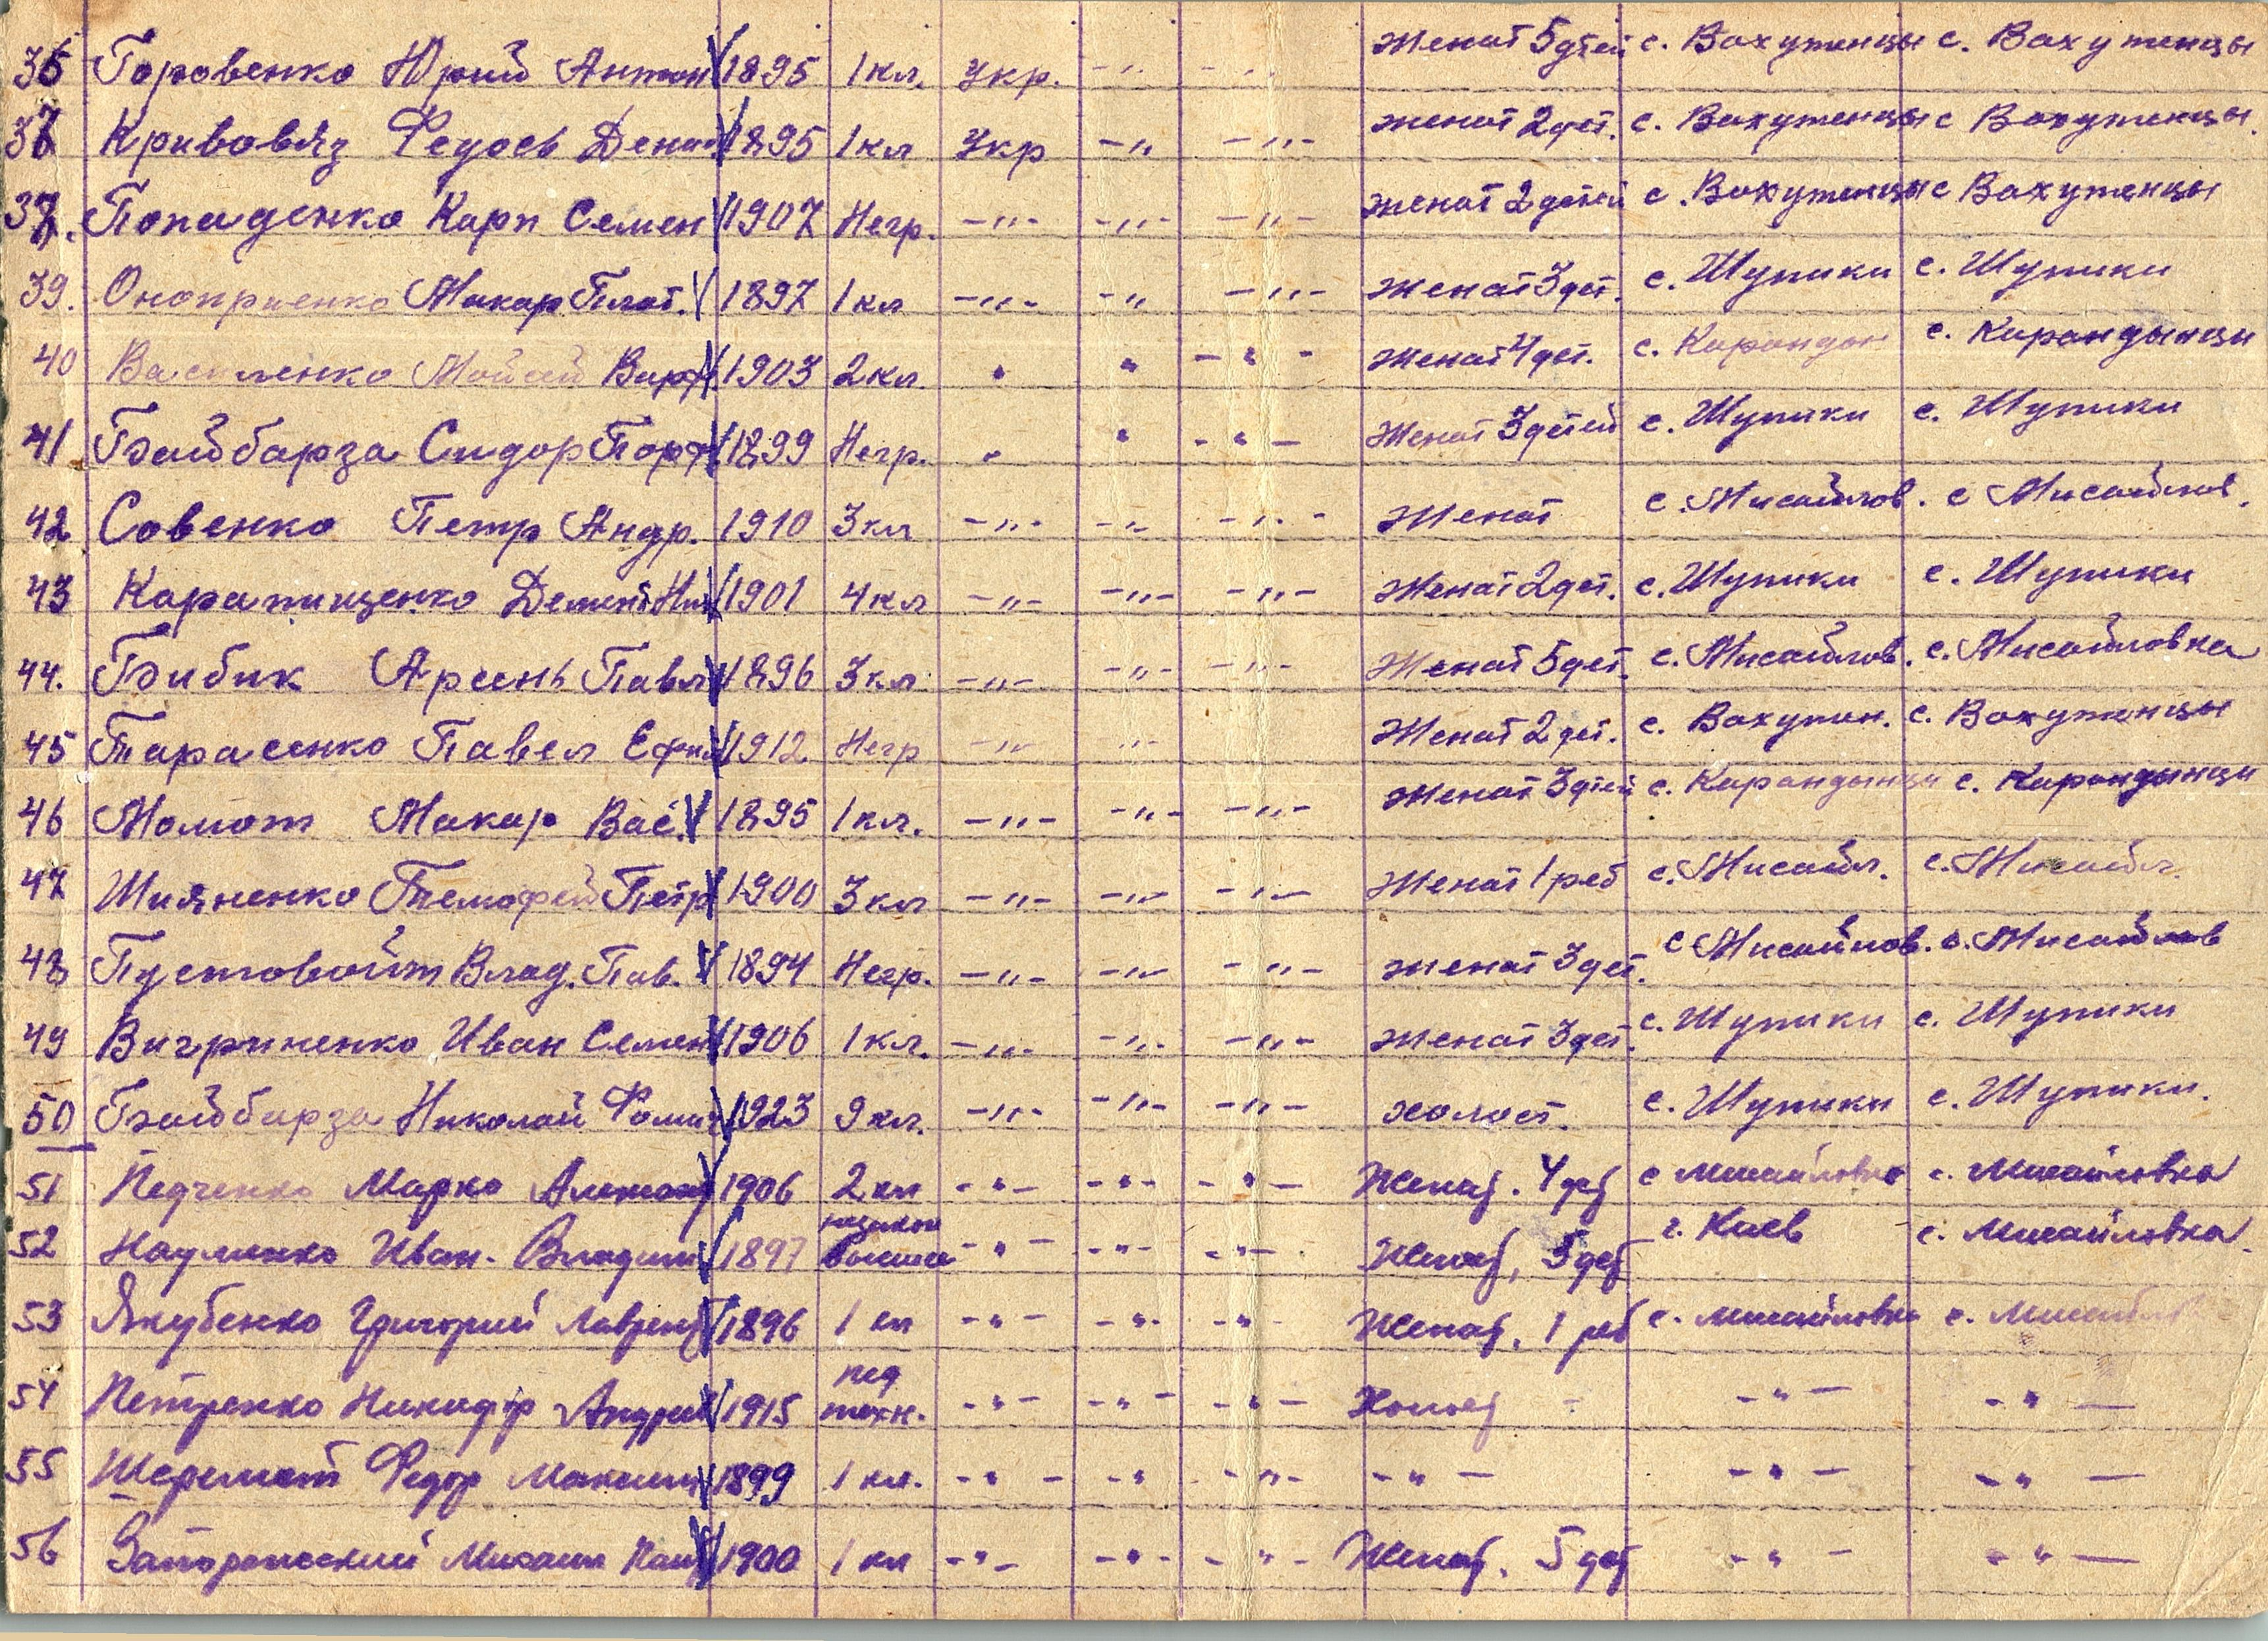 36 Горовенко Юрий Антон 1895 1 кл. Укр. -"- -"- Женат 5 дтей с. Вахутинцы с. Вахутинцы
37 Кривовяз Федось Дени 1895 1 кл Укр -"- -"- женат 2 дет. с. Вахутенцы с Вахутинцы.
Попаденко Карп Семен 1907 Негр. -"- -"- -"- женат 2 детей с. Вахутинцы с Вахутенцы
39. Оноприенко Макар Плат. 1897 1 кл -"- -"- -"- женат 3 дет. с. Шупики с. Шупики
40 Василенко Мойсей Варф 1903 2 кл. " " -"- женат 4 дет. с. с. Карандынци
41 Байбарза Сидор Порф 1899 Негр. " " -"- Женат 3 детей с. Шупики с. Шупики
42 Совенко Петр Андр. 1910 3 кл -"- -"- -"- Женат с. Мисайлов. с Мисайлов.
43 Карапищенко Демент 1901 4 кл -"- -"- -"- Женат 2 дет. с. Шупики с. Шупики
44. Бибик Арсень Павл 1896 3 кл -"- -"- -"- Женат 5 дет. с. Мисайлов. с. Мисайловка
45 Тарасенко Павел Ефим 1912 Негр -"- -"- Женат 2 дет. с. Вахутин. с. Вахутинцы
46 Момот Макар Вас. 1895 1 кл. -"- -"- -"- Женат 3 дтей с. Карандынци с. Карандынци
47 Шияненко Темофей Петр 1900 3 кл -"- -"- -"- Женат 1 реб с. Мисайл. с. Мисайл.
48 Пустовойт Влад. Пав. 1894 Негр. -"- -"- -"- женат 3 дет. с Мисайлов. с. Мисайлов
49 Вигриненко Иван Семен 1906 1 кл. -"- -"- -"- женат 3 дет. с. Шупики с. Шупики
50 Байбарза Николай Фоми 1923 9 кл. -"- -"- -"- холост. с. Шупики с. Шупики.
51 Педченко Марко 1906 2 кл -"- -"- -"- Женат. 4 дет с Мисайловка с. Мисайловка
52 Науменко Иван. Владим 1897 незакон высшее -"- -"- -"- Женат, 5 дет г. Киев с. Мисайловка.
53 Якубенко Григорий Лаврент 1896 1 кл -"- -"- -"- Женат, 1 реб с. Мисайловка с. Мисайлов
54 Петренко Никифор Андрее 1915 пед техн. -"- -"- -"- Холост -"- -"-
55 Шеремет Федор Максим 1899 1 кл. -"- -"- -"- -"- -"- -"-
56 Запорожский Михаил 1900 1 кл -"- -"- -"- Женат. 5 дет -"- -"-